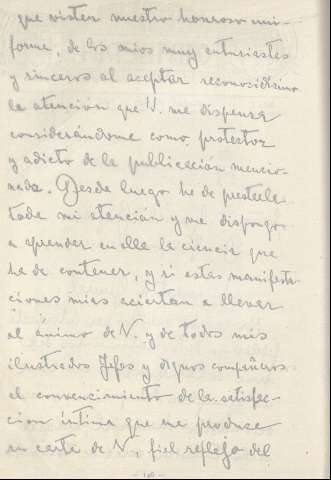 que visten nuestro honroso uni-
forme, de los mios muy entusiastas
y sinceros al aceptar reconocidísimo
la atención que V. me dispensa
considerándome como protector
y adicto de la publicación mencio-
nada. Desde luego he de prestarla
toda mi atención y me dispongo
a aprender en ella la ciencia que
ha de contener, y si estas manifesta-
ciones mias aciertan a llevar
al ánimo de V. y de todos mis
ilustrados Jefes y dignos compañeros
el convencimiento de la satisfac-
ción íntima que me produce
su carta de V., fiel reflejo del